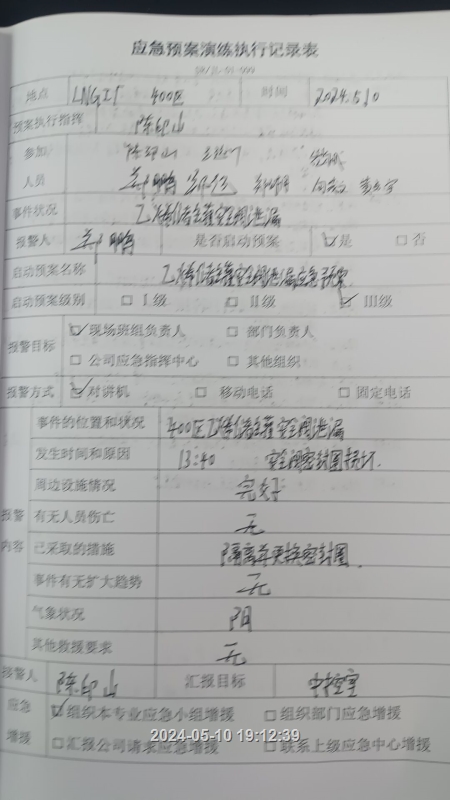 应急预案演练执行记录表
地点 LNG 400区 时间 2024.5.10
预案执行指挥 陈印山
参加 陈印山
人员
事件状况 乙烯储罐安全阀泄漏
报警人 是否启动预案 ☑是 □否
启动预案名称 乙烯储罐安全阀泄漏应急预案
启动预案级别 □ I级 □ II级 ☑ III级
报警目标 ☑现场班组负责人 □ 部门负责人
□ 公司应急指挥中心 □ 其他组织
报警方式 ☑对讲机 □ 移动电话 □ 固定电话
事件的位置和状况 400区乙烯储罐安全阀泄漏
发生时间和原因 13:40 安全阀密封圈损坏.
周边设施情况 完好
报警 有无人员伤亡 无
内容 已采取的措施 隔离并更换密封圈.
事件有无扩大趋势 无
气象状况 阴
其他救援要求 无
报警人 陈印山 汇报目标 中控室
应急 ☑组织本专业应急小组增援 □组织部门应急增援
增援 □汇报公司请求应急增援 □联系上级应急中心增援
2024-05-10 19:12:39